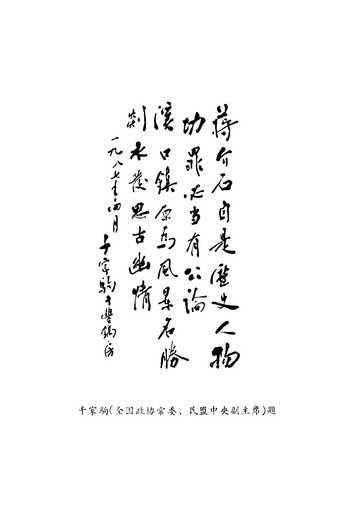 蒋介石自是歷史人物
功罪必当有公論
溪口鎮原为风景名勝
剡水發思古幽情
一九八七年四月
千家駒于豐鎬房
千家驹(全国政协常委、民盟中央副主席)题